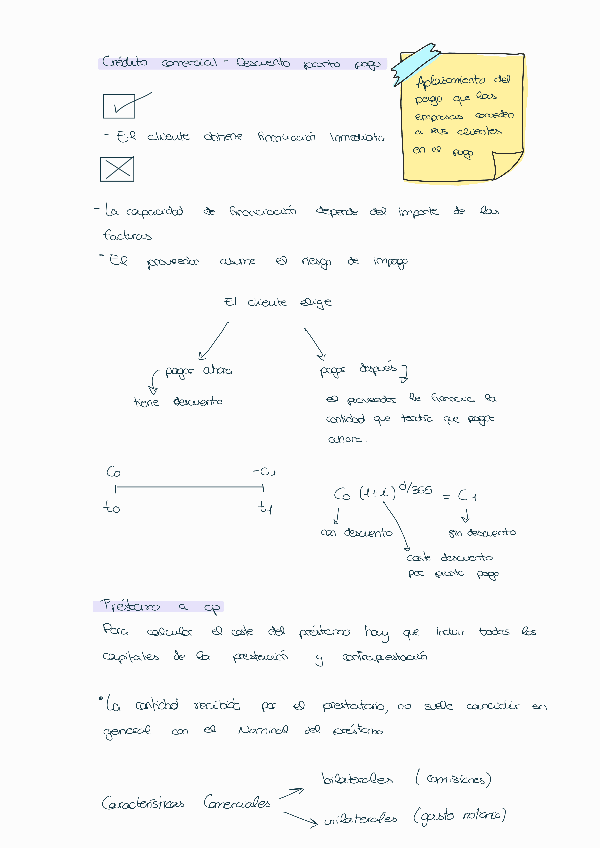 Crédito comercial - Descuento pronto pago
Aplazamiento del
pago que las
empresas conceden
a sus clientes
en el pago
- El cliente obtiene financiación inmediata
- La capacidad de financiación depende del importe de las
facturas
- El proveedor asume el riesgo de impago
El cliente elige
pagar ahora
pagar después
tiene descuento
el proveedor le financia la
cantidad que tendría que pagar
ahora.
C0 -C1
t0 t1
C0 (1+i)^d/365 = C1
con descuento
sin descuento
coste descuento
por pronto pago
Préstamo a cp
Para calcular el coste del préstamo hay que incluir todos los
capitales de la prestación y contraprestación
• La cantidad recibida por el prestatario, no suele coincidir en
general con el Nominal del préstamo
bilaterales (comisiones)
Características Comerciales
unilaterales (gasto notaria)